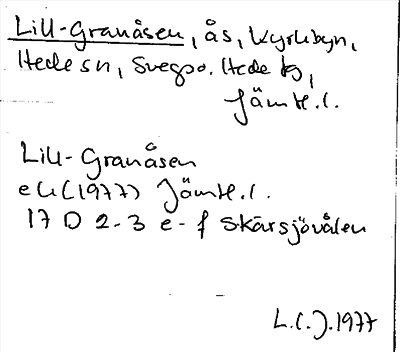 Lill-Granåsen, ås, Kyrkbyn,
Hede sn, Svegs o. Hede tg,
Jämtl. l.
Lill-Granåsen
ek (1977) Jämtl. l.
17 D 2-3 e-f Skärsjövålen
L.C.J. 1977